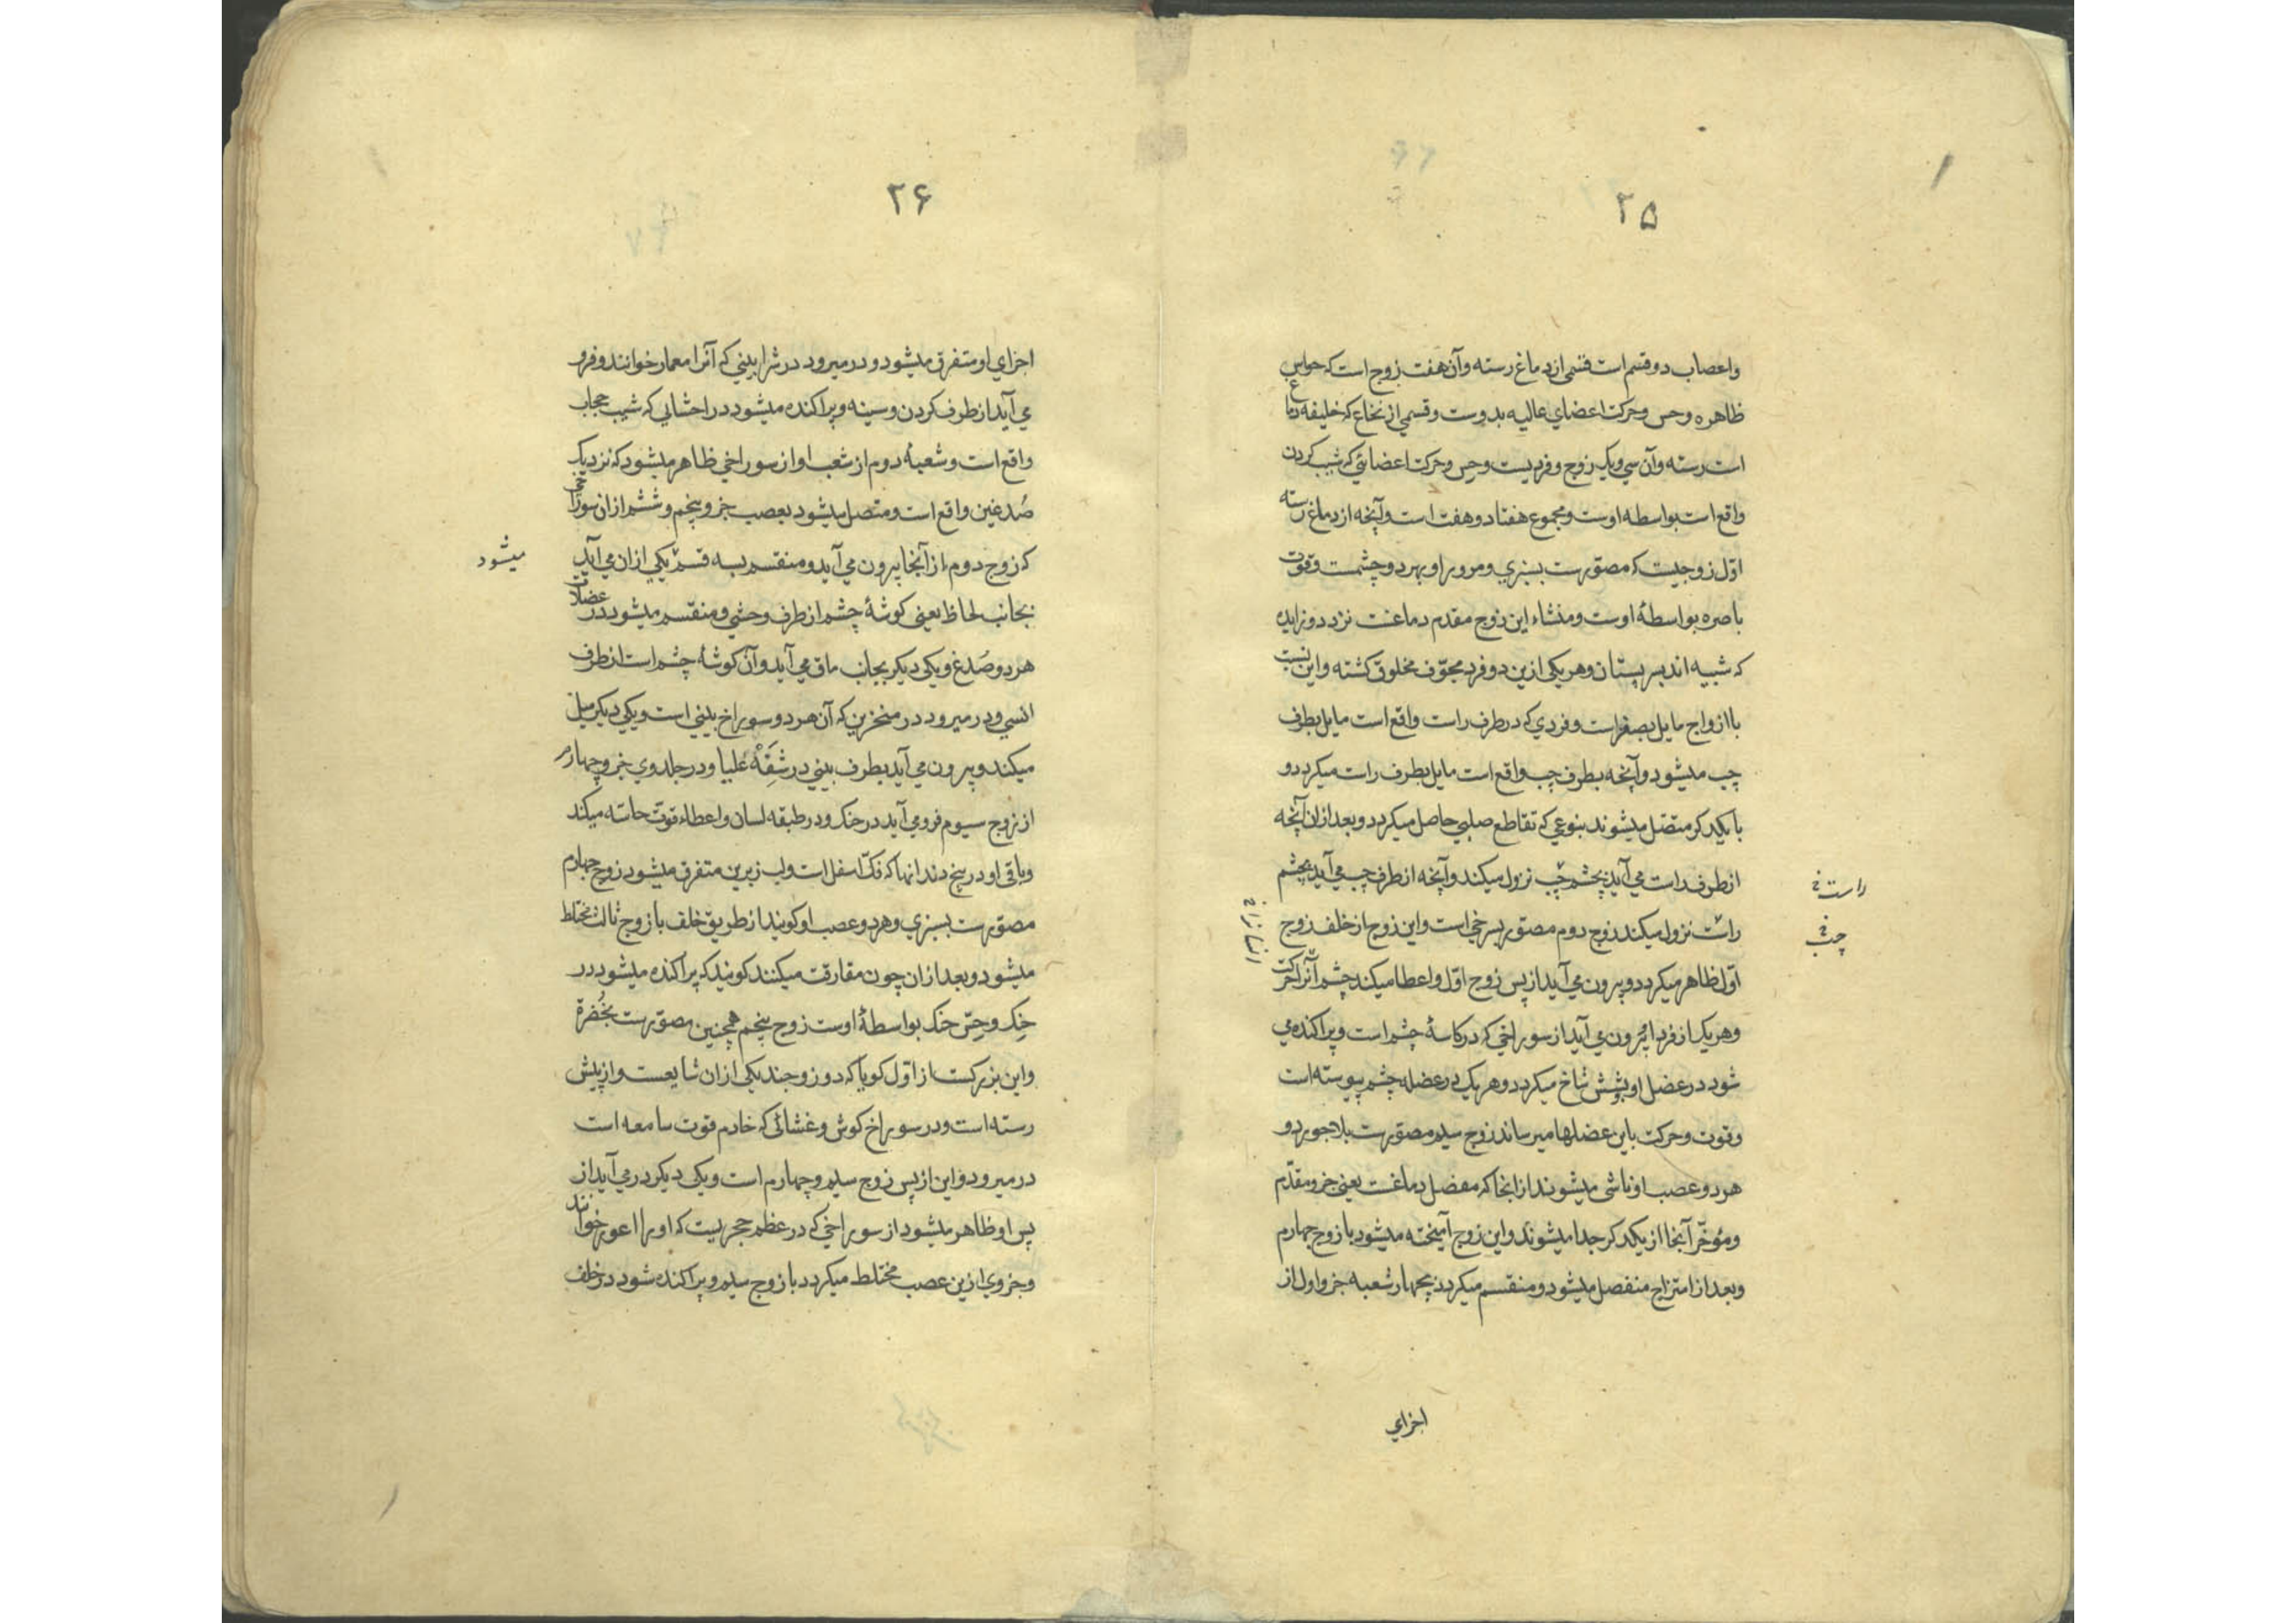 ۲۵
واعصاب دو قسم است قسمی از دماغ رسته وآن هفت زوج است که حواس
ظاهره وحس وحرکت اعضای عالیه بدوست وقسمی از نخاع که خلیفه دماغ
است رسته وآن سی ویک زوج وفردیست وحس وحرکت اعضائی که شیب کردن
واقع است بواسطه اوست ومجموع هفتاد وهفت است وآنچه از دماغ رسته
اوّل زوجیست که مصوّرست بسبزی ومرور او بهر دو چشمست وقوت
باصره بواسطهٔ اوست ومنشاء این زوج مقدم دماغست نزد دو زایده
که شبیه اند بسر پستان وهر یکی ازین دو فرد مجوّف مخلوق کشته واین نسبت
با ازواج مایل بصغر است وفردی که در طرف راست واقع است مایل بطرف
چپ میشود وآنچه بطرف چپ واقع است مایل بطرف راست میکردد و
با یکدکر متصّل میشوند بنوعی که تقاطع صلیبی حاصل میکردد وبعد ازان آنچه
از طرف راست می آید بچشم چپ نزول میکند وآنچه از طرف چپ می آید بچشم
راست نزول میکند زوج دوم مصوّر بسرخی است واین زوج از خلف زوج
اوّل ظاهر میکردد وبیرون می آید از پس زوج اوّل واعطا میکند چشم آنرا حرکت
وهر یک از فرد او بیرون می آید از سوراخی که در کاسهٔ چشم است وپراکنده می
شود در عضل او بشش شاخ میکردد وهر یک در عضله چشم پیوسته است
وقوت وحرکت باین عضلها میرساند زوج سیم مصوّرست بلاجورد و
هر دو عصب او ناشی میشوند از انجا که مفصل دماغست یعنی جزو مقدّم
ومؤخّر آنجا از یکدکر جدا میشوند واین زوج آمیخته میشود با زوج چهارم
وبعد از امتزاج منفصل میشود ومنقسم میکردد بچهار شعبه جزو اول از
راست
چپ
اجزای
۲۶
اجزای او متفرق میشود ودر میرود در شرا بینی که آنرا معمار خوانند وفرو
می آید از طرف کردن وسینه وپراکنده میشود در احشایی که شیب حجاب
واقع است وشعبهٔ دوم از شعب او از سوراخی ظاهر میشود که نزدیک
صُدغین واقع است ومتصل میشود بعصب جزو پنجم وششم ازان سوراخی
که زوج دوم از آنجا بیرون می آید ومنقسم بسه قسم یکی ازان می آید
میشود
بجانب لحاظ یعنی کوشهٔ چشم از طرف وحشی ومنقسم میشود در عضلات
هر دو صَدغ ویکی دیکر بجانب ماق می آید وآن کوشهٔ چشم است از طرف
انسی ودر میرود در منخرین که آن هر دو سوراخ بینی است ویکی دیکر میل
میکند وبیرون می آید بطرف بینی در شَفَهٔ عُلیا ودر جلد وی جزو چهارم
از زوج سیوم فرو می آید در حنک ودر طبقه لسان واعطاء قوّت حاسّه میکند
وباقی او در بیخ دندانها که فکّ اسفل است ولب زیرین متفرق میشود زوج چهارم
مصوّرست بسبزی وهر دو عصب او کویند از طریق خلف با زوج ثالث مختلط
میشود وبعد ازان چون مفارقت میکنند کویند که پراکنده میشود در
حنک وحِسّ حنک بواسطهٔ اوست زوج پنجم همچنین مصوّرست بخُفرة
واین بزرکست از اوّل کویا که دو زوجند یکی ازان شایعست واز پیش
رسته است ودر سوراخ کوش وغشائی که خادم قوت سامعه است
در میرود واین از پس زوج سیم وچهارم است ویکی دیکر در می آید از
پس او ظاهر میشود از سوراخی که در عظم حجریست که او را اعور خوانند
وجزوی ازین عصب مختلط میکردد با زوج سیم وپراکنده شود در خلف